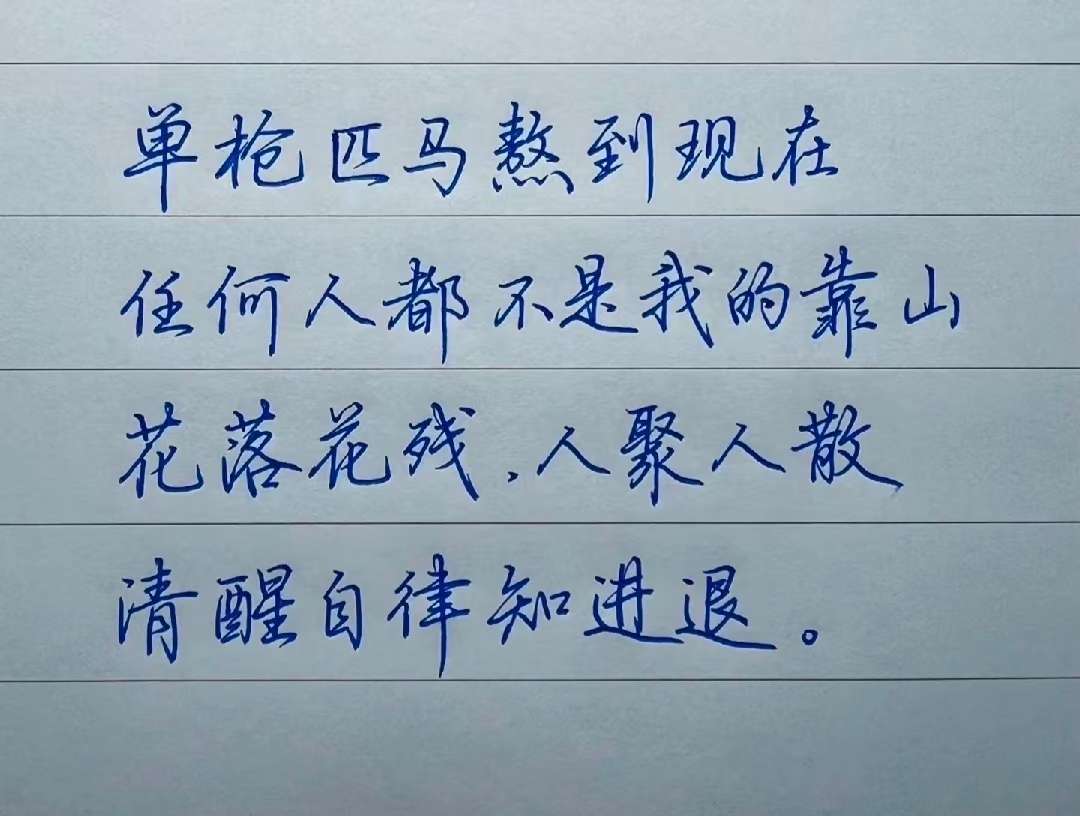 单枪匹马熬到现在
任何人都不是我的靠山
花落花残，人聚人散
清醒自律知进退。